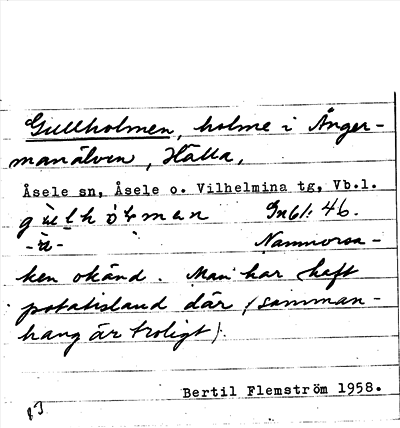 Gullholmen, holme i Ånger-
manälven, Hälla,
Åsele sn, Åsele o. Vilhelmina tg, Vb.l.
46.
-ù- Namnorsa-
ken okänd. Man har haft
potatisland där (samman-
hang är troligt).
Bertil Flemström 1958.